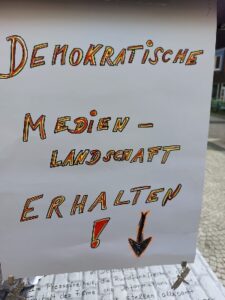 DEMOKRATISCHE
MEDIEN-
LANDSCHAFT
ERHALTEN
!